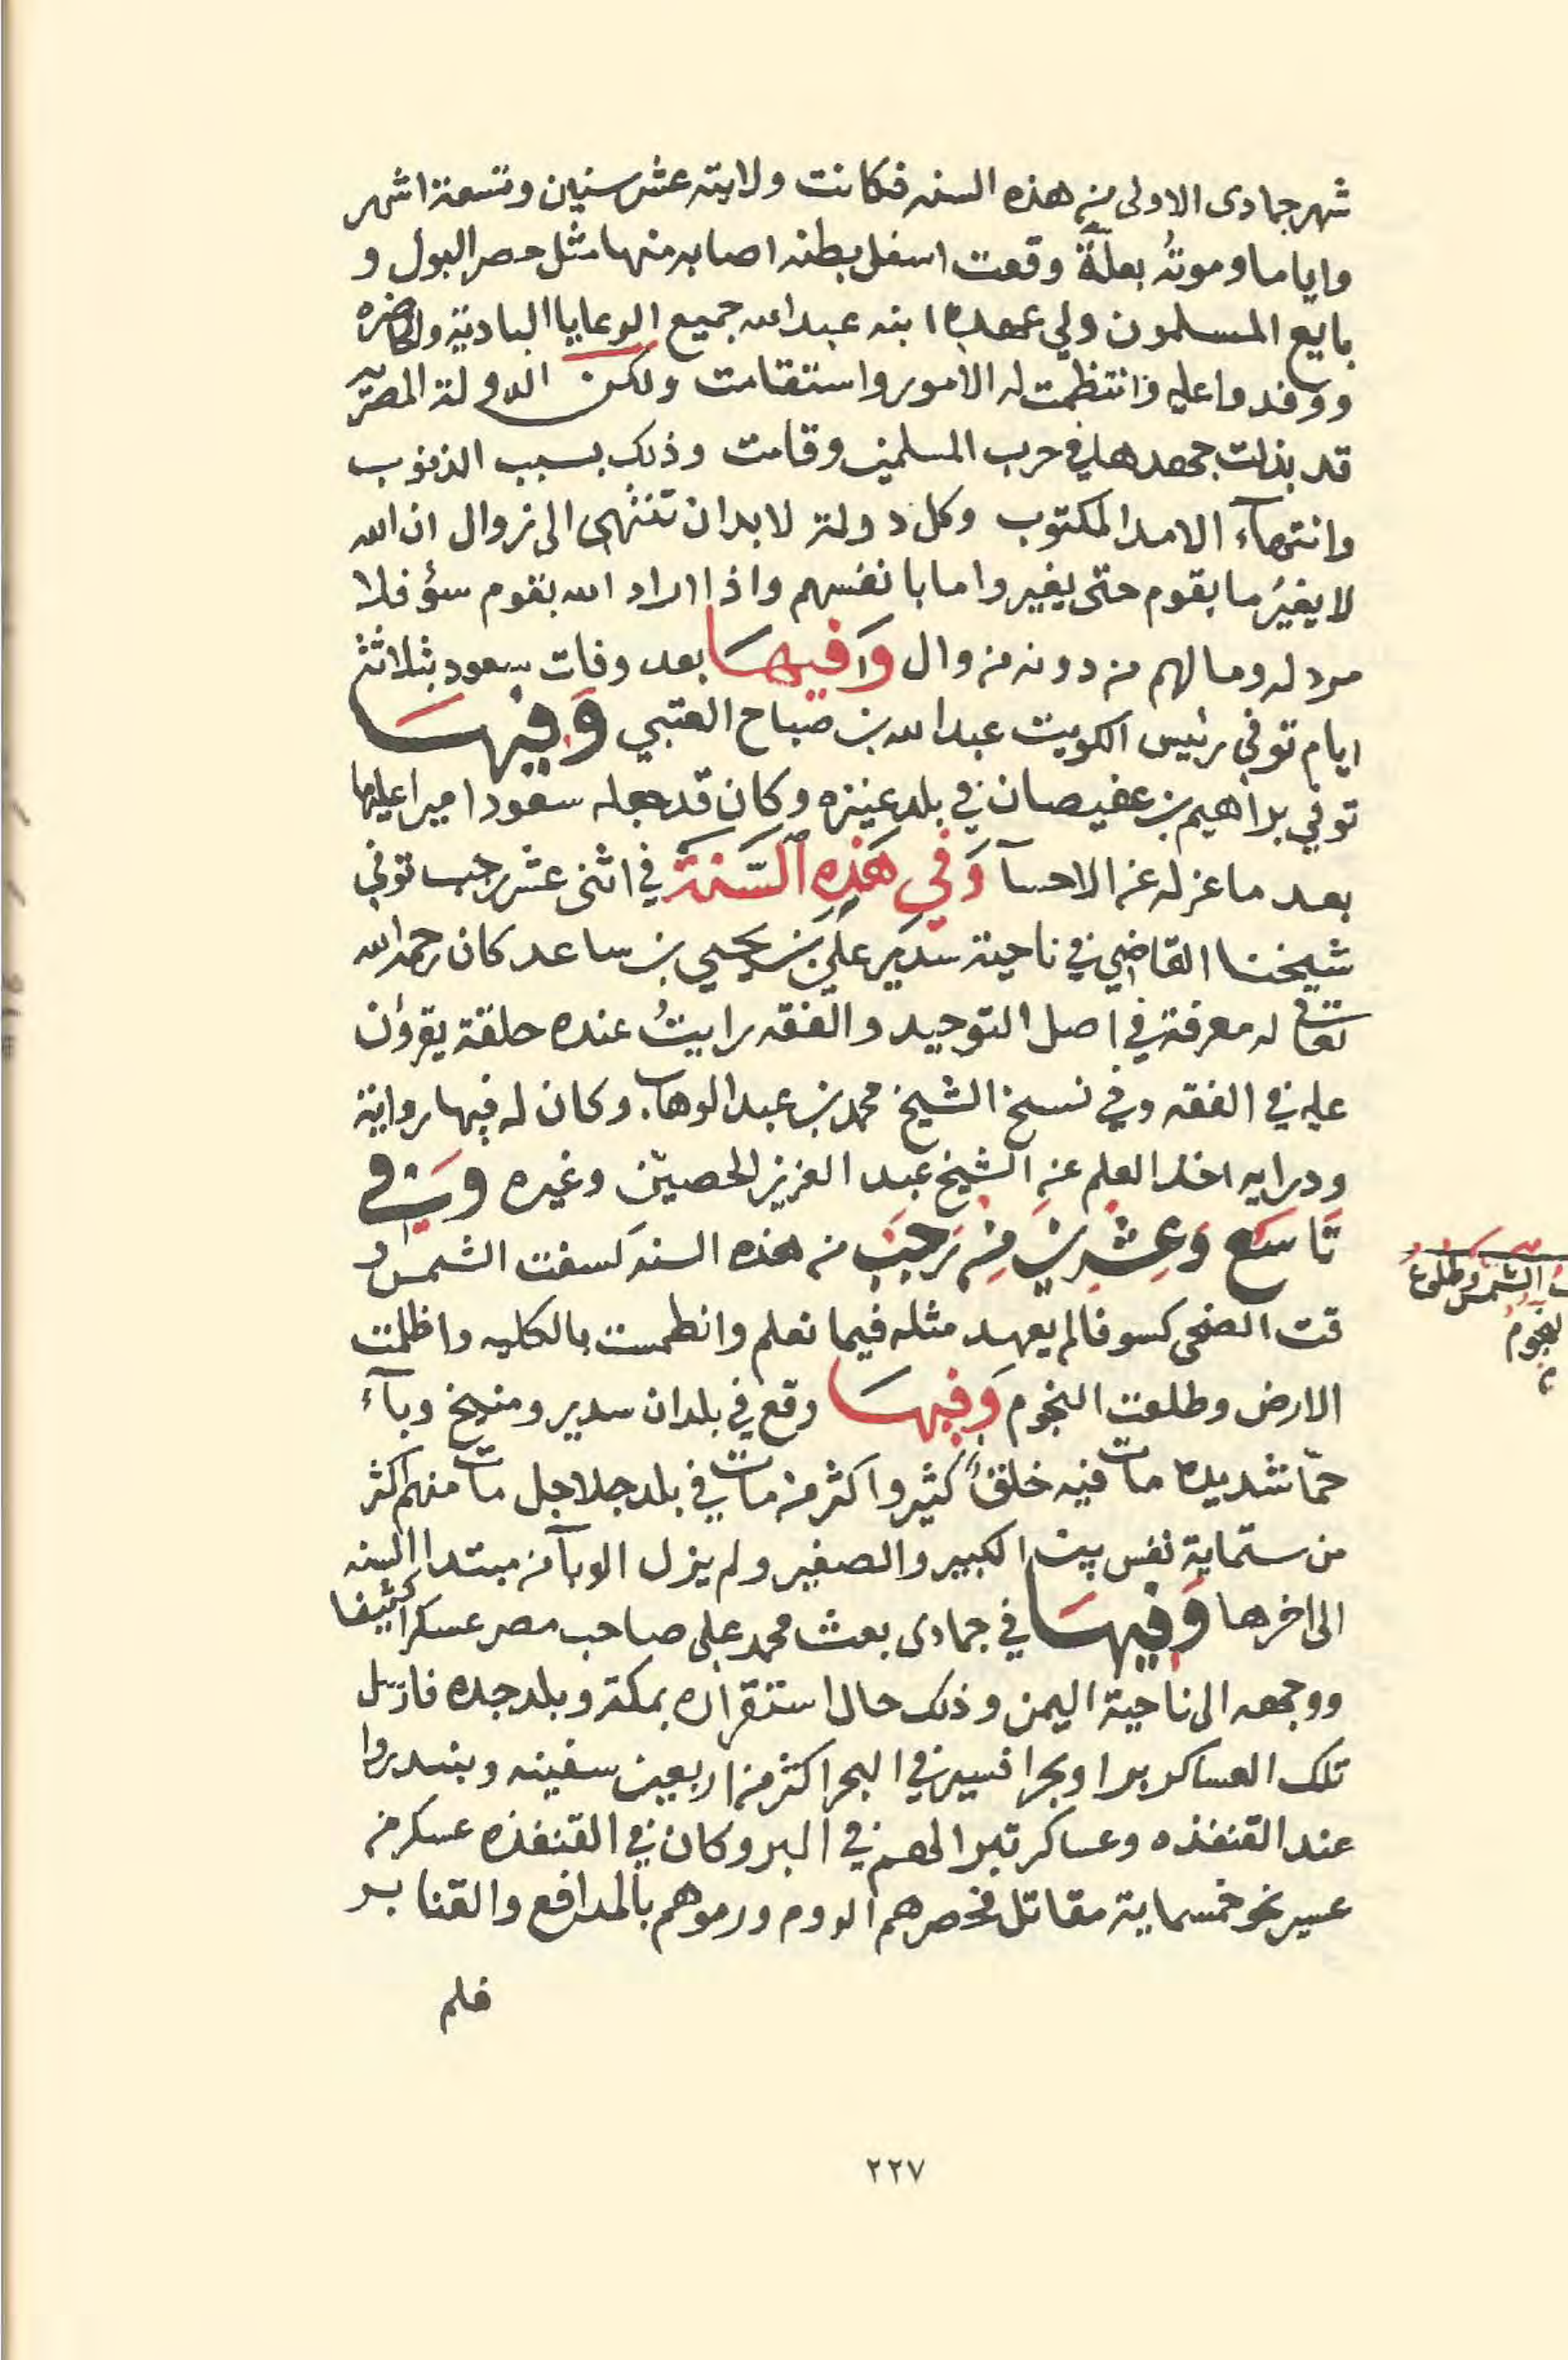 شهر جمادى الاولى من هذه السنه فكانت ولايته عشر سنين وتسعة اشهر
واياما وموتهُ بعلّةً وقعت اسفل بطنه اصابه منها مثل حصر البول و
بايع المسلمون ولي عهده ابنه عبدالله جميع الرعايا البادية والحاضره
ووفدوا عليه فانتظمت له الامور واستقامت ولكن الدولة المصريه
قد بذلت جهدها في حرب المسلمين وقامت وذلك بسبب الذنوب
وانتهآء الامد المكتوب وكل دولة لابد ان تنتهي الى زوال ان الله
لا يغيُر ما بقوم حتى يغيروا ما بانفسهم واذا اراد الله بقوم سؤ فلا
مرد له وما لهم من دونه من وال وَفيهَا بعد وفات سعود بثلاثة
ايام توفي رئيس الكويت عبدالله بن صباح العتبي وَفيهَا
توفي براهيم بن عفيصان في بلد عنيزه وكان قد جعله سعود اميرا عليها
بعد ما عزله عن الاحسآ وَفي هَذِهِ السَّنَة في اثنى عشر رجب توفي
شيخنا القاضي في ناحية سدَير علي بَن يحيي بن ساعد كان رحمه الله
تعالى له معرفة في اصل التوحيد والفقه رايتُ عنده حلقة يقرؤن
عليه في الفقه وفي نسخ الشيخ محمد بن عبدالوهاب وكان له فيها رواية
ودرايه اخذ العلم عن الشيخ عبد العزيز الحصيّن وغيره وَفي
تَاسَع وَعِشْرِينَ مِن رَجَبَ من هذه السنه كسفت الشمس و
قت الضحى كسوفا لم يعهد مثله فيما نعلم وانطمست بالكليه واظلمت
الارض وطلعت النجوم وَفيهَا وقع في بلدان سدير ومنيخ وبآء
حمّا شديده مات فيه خلقٌ كثير واكثر من مات في بلد جلاجل مات منهم اكثر
من ستماية نفس بين الكبير والصغير ولم يزل الوبآ من مبتدا السنه
الى اخرها وَفيهَا في جمادى بعث محمد علي صاحب مصر عسكرا كثيفا
ووجهه الى ناحية اليمن وذلك حال استقراره بمكة وبلد جده فارسل
تلك العساكر برا وبحرا فسير في البحر اكثر من اربعين سفينه وبندروا
عند القنفذه وعساكر تبرا لهم في البر وكان في القنفذه عسكر من
عسير نحو خمسماية مقاتل فحصرهم الروم ورموهم بالمدافع والقنابر
فلم
الشمس وطلوع
النجوم
٢٢٧